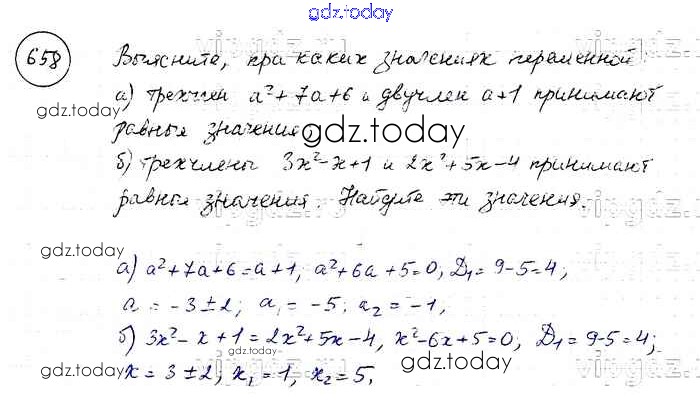 gdz.today
658 Выясните, при каких значениях переменной:
а) трехчлен a²+7a+6 и двучлен a+1 принимают
gdz.today
равные значения;
gdz.today
б) трехчлены 3x²-x+1 и 2x²+5x-4 принимают
равные значения. Найдите эти значения.
gdz.today
а) a²+7a+6=a+1, a²+6a+5=0, D₁=9-5=4;
a = -3±2; a₁ = -5; a₂ = -1,
б) 3x²-x+1=2x²+5x-4, x²-6x+5=0, D₁=9-5=4;
gdz.today
x = 3±2, x₁=1, x₂=5,
gdz.today